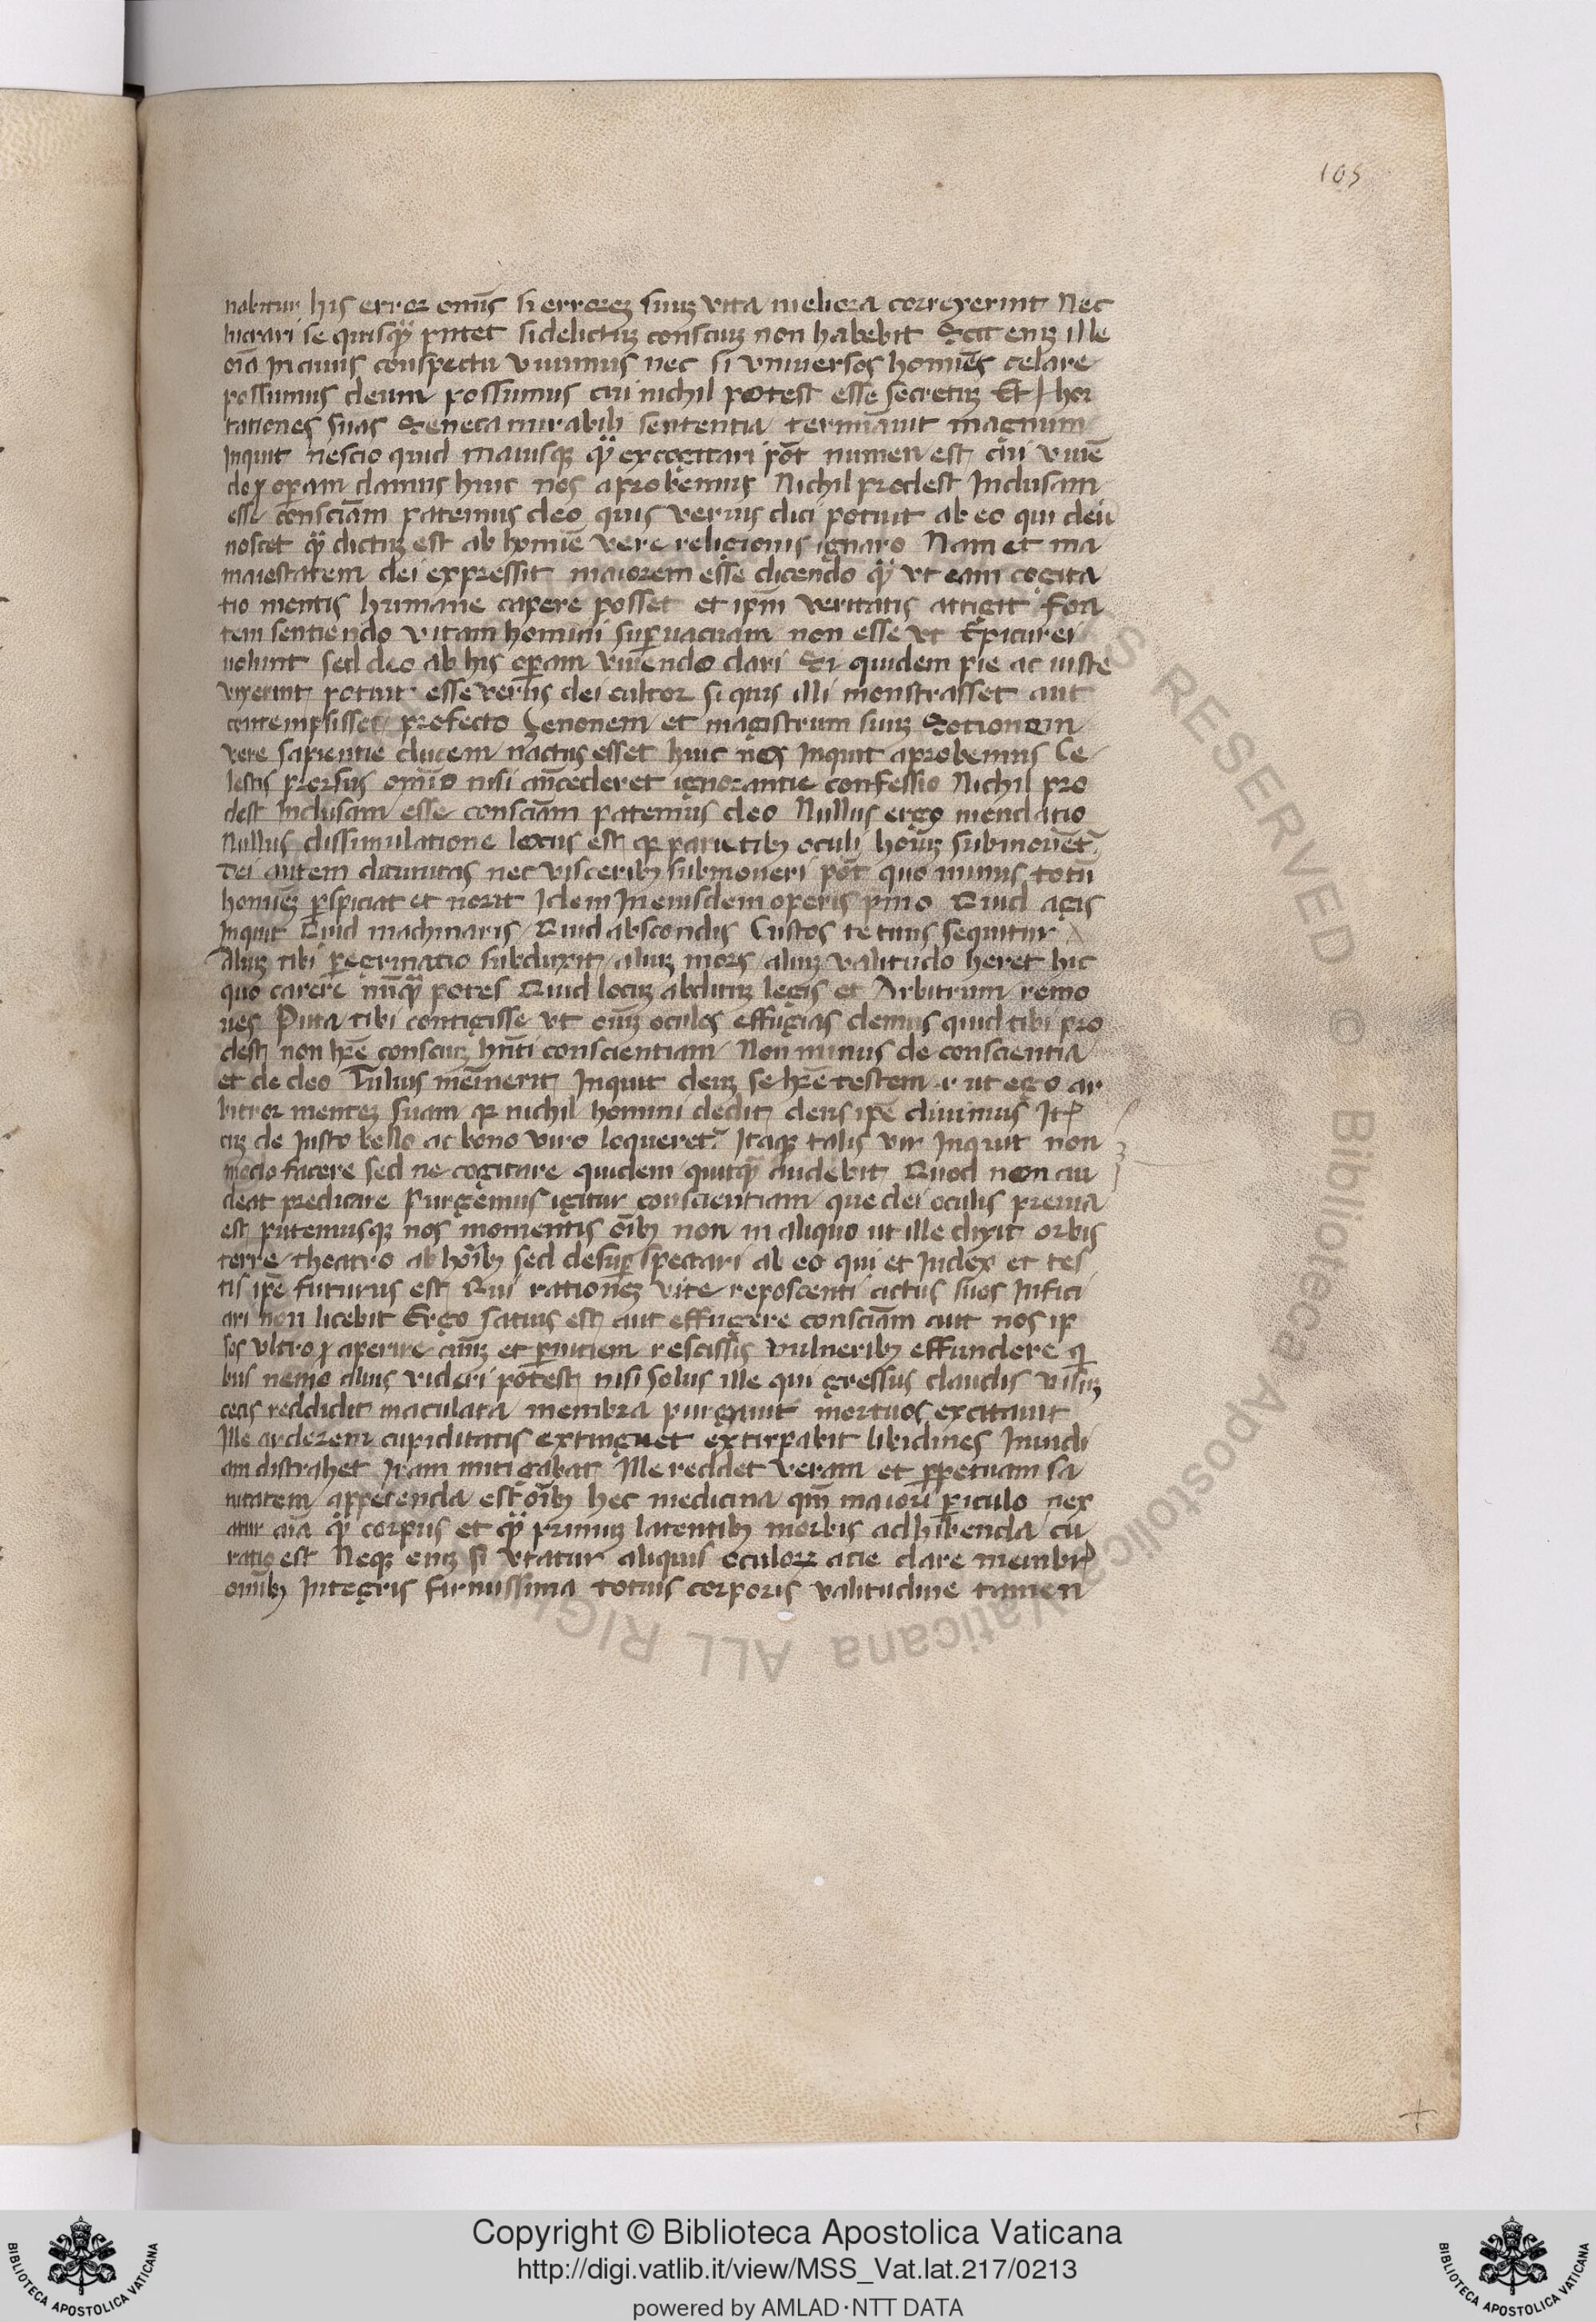 105
nabitur his error omīs si errorēꝫ suuꝫ vita meliora correxerint Nec
lucrari se quisqᷓ putet si delictuꝫ consciuꝫ non habebit Scit enīꝫ ille
oīa in cuius conspectu viuimus nec si vniuersos homīes celare
possumus deum possumus cui nichil potest esse secretuꝫ Et hor
tationes suas Seneca mirabili sententia terminauit magnum
Inquit nescio quid maiusqꝫ qᷓ excogitari pōt numen est cui viuē
do operam damus huic nos aprobemus Nichil prodest Inclusam
esse consciam patemus deo quis verius dici potuit ab eo qui deū
nosçet qᷓ dictuꝫ est ab homīe vere religionis ignaro Nam et ma
maiestatem dei expressit maiorem esse dicendo qᷓ vt eam cogita
tio mentis humane capere posset et ipm̄ veritatis attigit fon
tem sentiendo vitam homini suꝑuacuam non esse vt Epicurei
uolunt sed deo ab his oꝑam viuendo dari Si quidem pie ac iuste
vixerint potuit esse verus dei cultor si quis illi monstrasset aut
contempsisset profecto Zenonem et magistrum suuꝫ Sotionem
vere sapientie ducem nactus esset huic nos Inquit aprobemus Ce
lestis prorsus omīo nisi an̄cederet ignorantie confessio Nichil pro
dest Inclusam esse consciam patemus deo Nullus ergo mendatio
Nullus dissimulatione locus est qꝛ parietibꝫ oculi hoīuꝫ submouēt᷑
Dei autem diuinitas nec visceribꝫ submoueri pōt quo minus totū
homineꝫ ꝑspiciat et norit Idem In eiusdem operis pͥmo Quid agis
Inquit Quid machinaris Quid abscondis Custos te tuus sequitur
Aliuꝫ tibi ꝑegrinatio subduxit aliuꝫ mors aliuꝫ valitudo heret hic
quo carere nūqᷓ potes Quid locuꝫ abdituꝫ legis et Arbitrum remo
ues Puta tibi contigisse vt oīuꝫ oculos effugias demus quid tibi pro
dest non hr̄e consciuꝫ hn̄ti conscientiam Non minus de conscientia
et de deo Tulius mēinerit Inquit deuꝫ se hr̄e testem .i. ut ego ar
bitror menteꝫ suam qꝛ nichil homini dedit deus ipē diuinius Itꝫ
cuꝫ de Iusto bello ac bono viro loqueret᷑ Itaqꝫ talis vir Inquit non
modo facere sed ne cogitare quidem quitqᷓ audebit Quod non au
deat predicare Purgemus igitur conscientiam que dei oculis peruia
est putemusqꝫ nos momentis oībꝫ non in aliquo ut ille dixit orbis
terre theatro ab hoībꝫ sed desuꝑ spectari ab eo qui et Iudex et tes
tis ipē futurus est Qui rationeꝫ vite reposcenti actus suos Infici
ari non licebit Ergo satius est aut effugere consciam aut nos ip
sos vltro aperire aīuꝫ et ꝑnitiem rescissis vulneribꝫ effundere qͥ
bus nemo alius videri potest nisi solus ille qui gressus claudis visuꝫ
cecis reddidit maculata membra purgauit mortuos excitauit
Ille ardorem cupiditatis extinguet extirpabit libidines Inuidi
am distrahet Iram mitigabat Ille reddet veram et ꝑpetuam sa
nitatem appetenda est oībꝫ hec medicina qm̄ maiori ꝑiculo uex
atur aīa qᷓ corpus et qᷓ primuꝫ latentibꝫ morbis adhibenda cu
ratio est Neqꝫ eniꝫ si vtatur aliquis oculoꝝ acie clare membrꝭ
omībꝫ Integris firmissima totius corporis valitudine tamen
Biblioteca Apostolica Vaticana ALL RIGHTS RESERVED ©
Copyright © Biblioteca Apostolica Vaticana
http://digi.vatlib.it/view/MSS_Vat.lat.217/0213
powered by AMLAD·NTT DATA
BIBLIOTECA APOSTOLICA VATICANA
BIBLIOTECA APOSTOLICA VATICANA